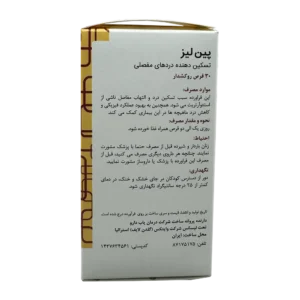 پین لیز
تسکین دهنده دردهای مفصلی
۳۰ قرص روکشدار
موارد مصرف:
این فرآورده سبب تسکین درد و التهاب مفاصل ناشی از
استئوآرتریت می شود. همچنین به بهبود عملکرد فیزیکی و
کاهش درد ماهیچه ها در این بیماری کمک می کند.
نحوه و مقدار مصرف:
روزی یک الی دو قرص همراه غذا خورده شود.
احتیاط:
زنان باردار و شیرده قبل از مصرف حتما با پزشک مشورت
نمایند. چنانچه هر داروی دیگری مصرف می کنید، قبل از
مصرف این فرآورده با پزشک یا داروساز مشورت نمایید.
نگهداری:
دور از دسترس کودکان در جای خشک و خنک، در دمای
کمتر از ۲۵ درجه سانتیگراد نگهداری شود.
تاریخ تولید و انقضا، قیمت و سری ساخت بر روی فرآورده درج شده است.
دارنده پروانه ساخت: شرکت درمان یاب دارو
تحت لیسانس شرکت
محل ساخت: ایران
تلفن:
کدپستی: